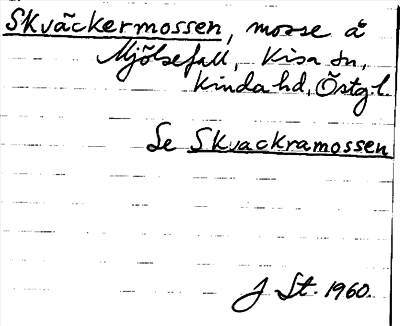 Skväckermossen, mosse å
Mjölsefall, Kisa sn,
Kinda hd, Östgl.
Se Skvackramossen
J St. 1960.